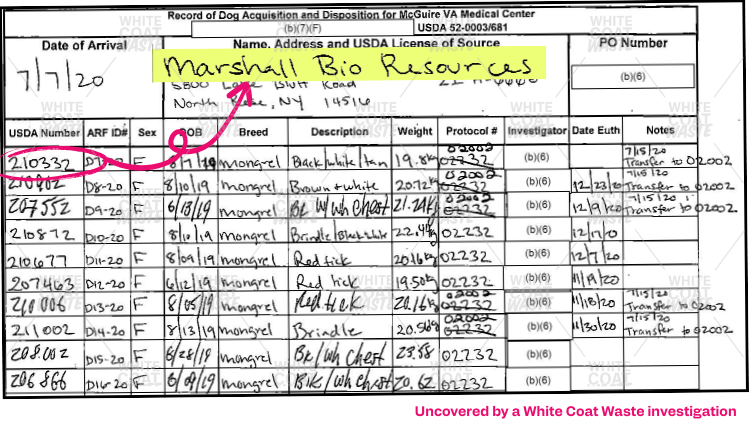 Record of Dog Acquisition and Disposition for McGuire VA Medical Center
(b)(7)(F) USDA 52-0003/681
Date of Arrival Name, Address and USDA License of Source PO Number
7/7/20 Marshall Bio Resources (b)(6)
5800 Lake Bluff Road
North Rose, NY 14516
USDA Number ARF ID# Sex DOB Breed Description Weight Protocol # Investigator Date Euth Notes
210332 F 8/7/19 mongrel Black/white/tan 19.8kg 02002 02232 (b)(6) 7/15/20 Transfer to 02002
D8-20 F 8/10/19 mongrel Brown + white 20.72kg 02002 02232 (b)(6) 12/23/20 Transfer to 02002
207552 D9-20 F 6/13/19 mongrel Bk w/wh Chest 02002 02232 (b)(6) 12/9/20 7/15/20 Transfer to 02002
210872 D10-20 F 8/10/19 mongrel Brindle/Black white 22.4kg 02232 (b)(6)
210677 D11-20 F 8/09/19 mongrel Red tick 20.16kg 02232 (b)(6) 12/7/20
207463 D12-20 F 6/12/19 mongrel Red tick 19.50kg 02232 (b)(6) 11/19/20
D13-20 F 8/05/19 mongrel Red tick 20.16kg 02002 02232 (b)(6) 11/18/20 7/15/20 Transfer to 02002
211002 D14-20 F 8/13/19 mongrel Brindle 02002 02232 (b)(6) 11/30/20 7/15/20 Transfer to 02002
208002 D15-20 F 6/28/19 mongrel Bk/wh chest 23.58 02232 (b)(6)
206866 D16-20 F 6/09/19 mongrel Blk/wh chest 20.62 02232 (b)(6)
WHITE COAT WASTE
Uncovered by a White Coat Waste investigation